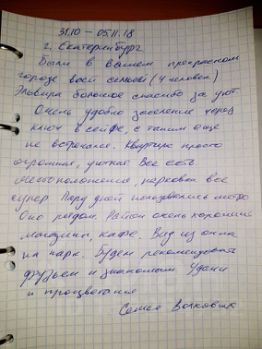 31.10 – 05.11.18
г. Екатеринбург
Были в вашем прекрасном
городе всей семьей (4 человека)
Эльвира большое спасибо за уют
Очень удобно заселение через
ключ в сейфе, с таким еще
не встречался. Квартира просто
огромная, уютная Все есть
местоположение, парковка все
супер Пару дней пользовались метро
Оно рядом. Район очень хороший
магазины, кафе. Вид из окна
на парк. Будем рекомендовать
друзьям и знакомым Удачи
и процветания
Семья